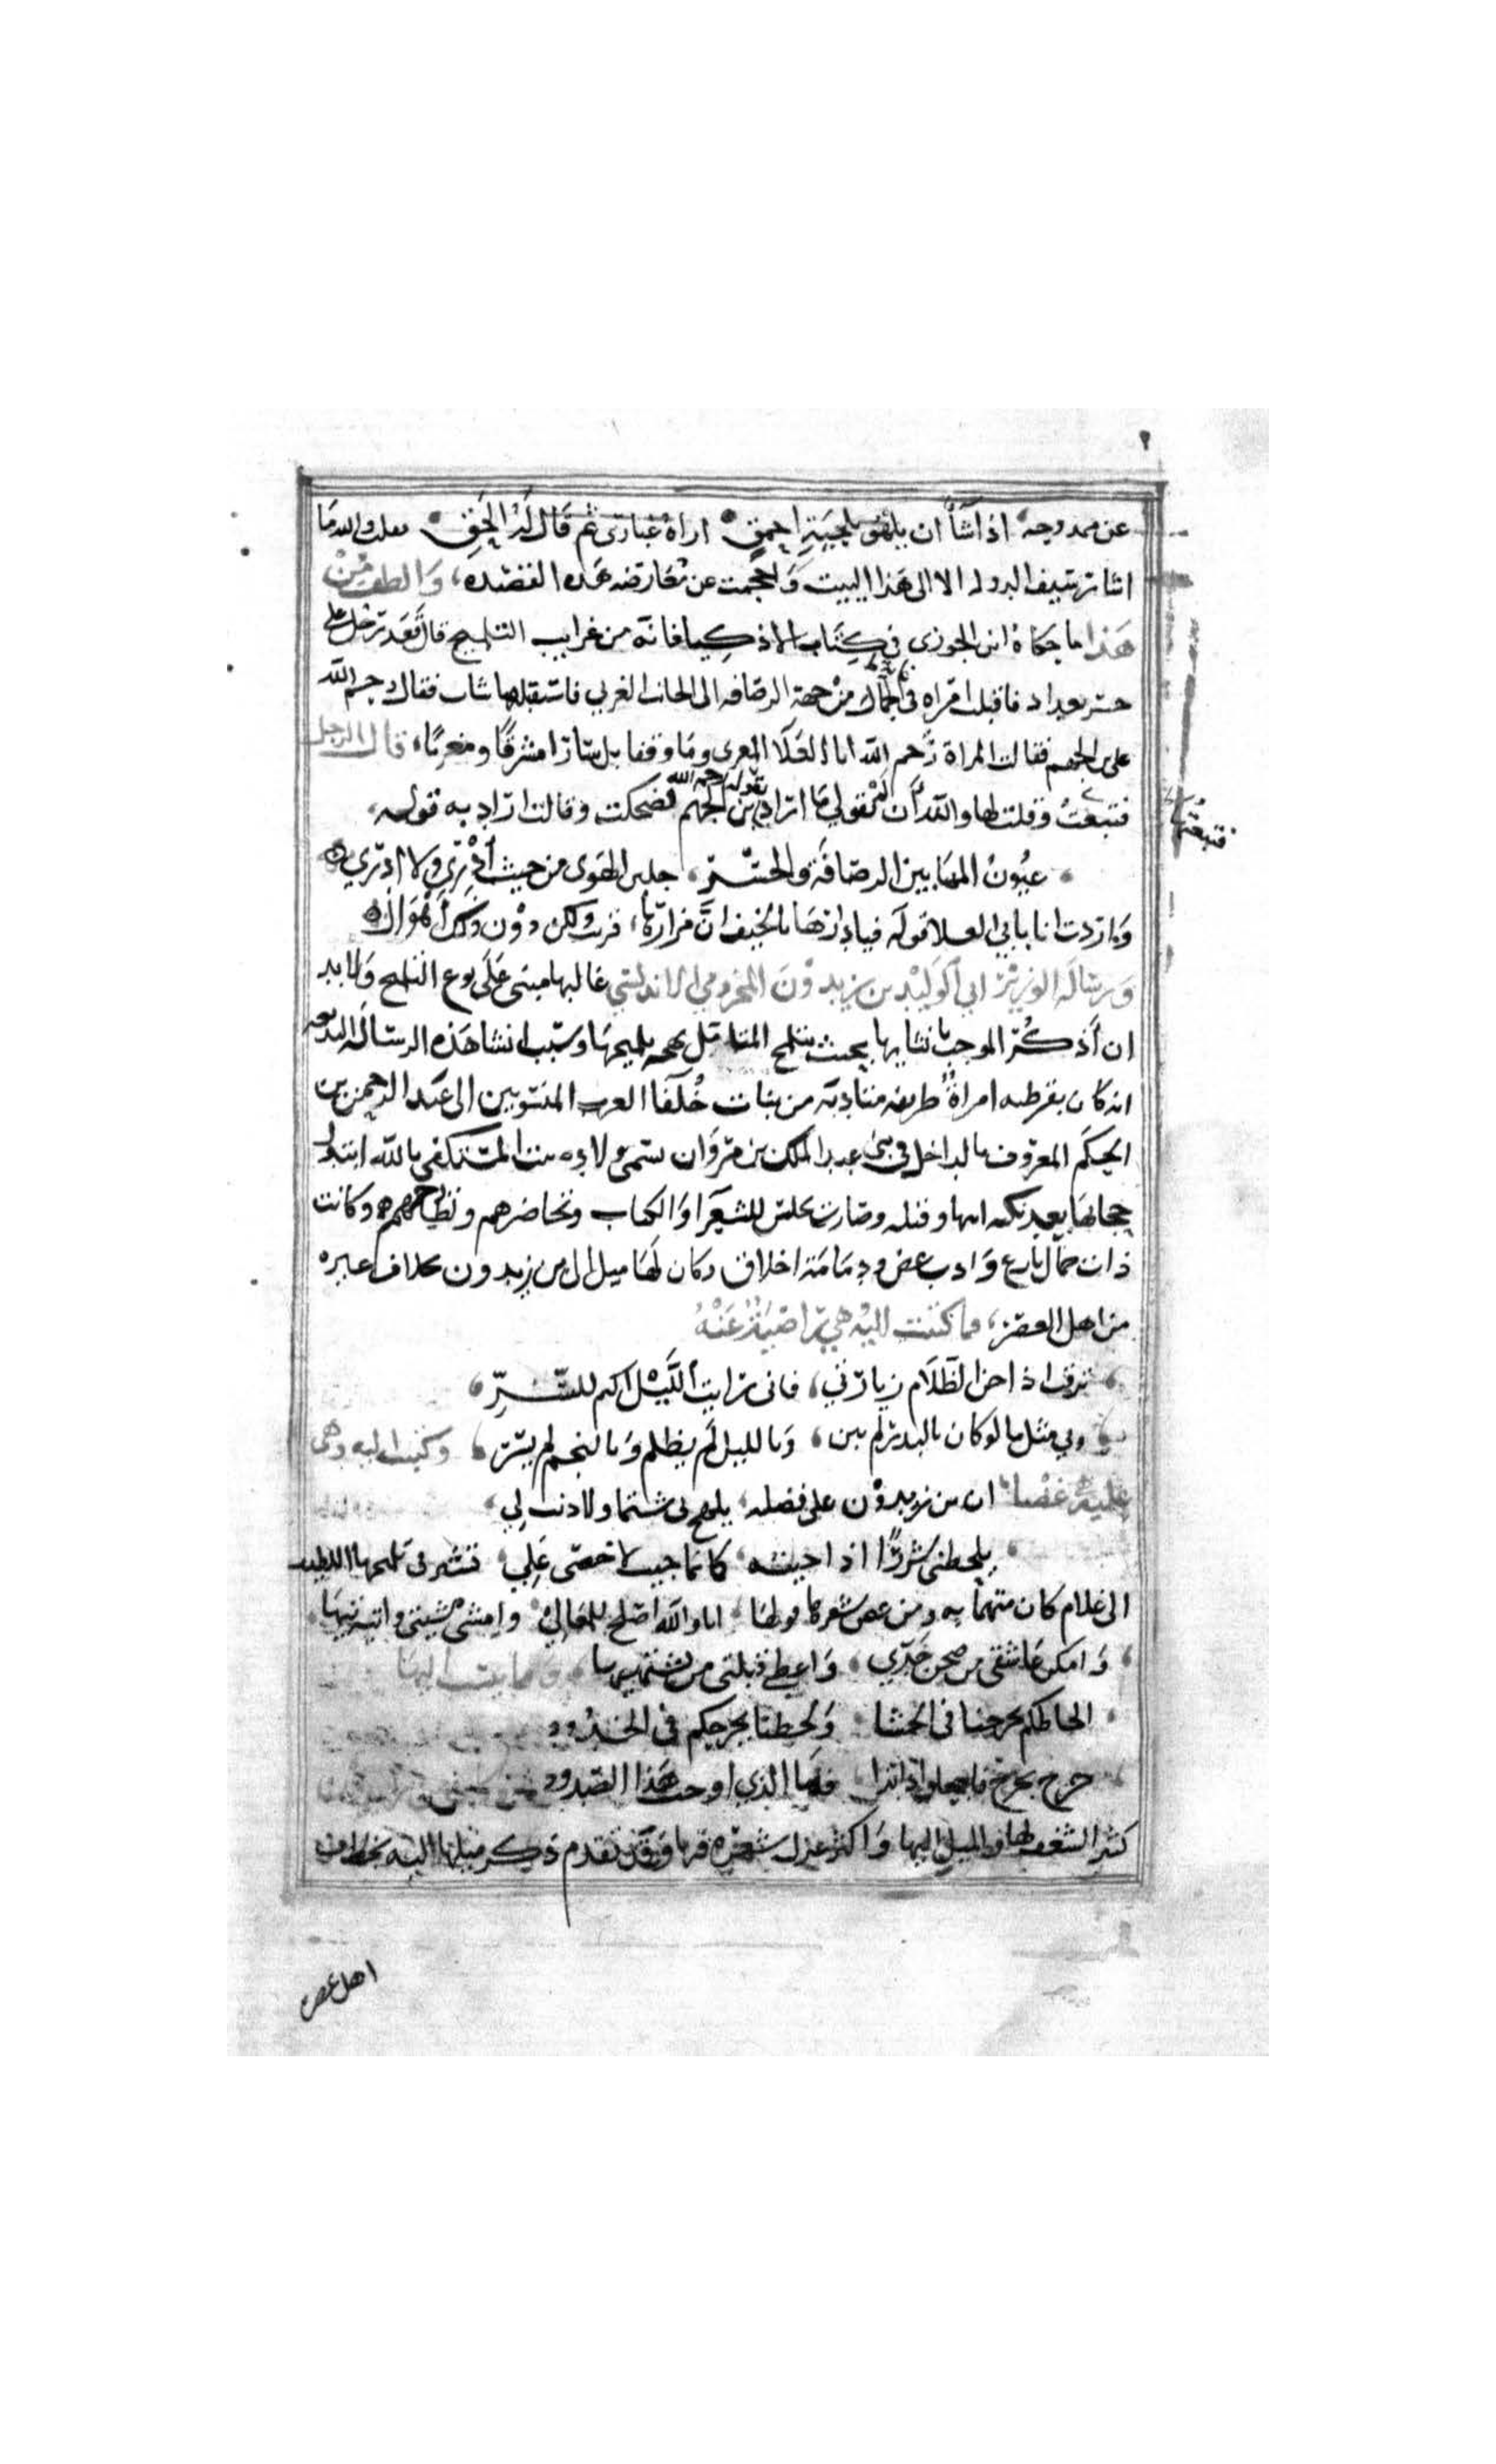 ٢
عن ممدوحه اذا شأ ان يلهو بلحية احمق اراهُ غبارى ثم قال له الحق فعلمت والله ما
اشار سيف الدوله الا الى هَذا البيت وَاحجمت عن مُعارضه هَذه القصيده، وَالطف مِنْ
هَذا ما حكاهُ ابن الجوزى فى كتاب الاذكيا فانه من غرايب التلميح قال قعَد رَجل على
جسر بغداد فاقبلت امراه فى الجمال من جهة الرصافه الى الجانب الغربي فاستقبلها شاب فقال رحم الله
على بن الجهم فقالت المراة رَحم الله ابا العَلا المعرى وما وقفا بل سَارَا مشرقًا ومغربًا، قال الرجل
فتبعتُ وقلت لها والله ان لم تقولي مَا ارَاد بن الجهم لضحكت وقالت ارَاد به قوله،
بقوله رحمه الله
فتبعتُها
عيُونُ المهَا بين الرصَافَة وَالجسْرِ، جلبن الهَوى من حيث أدْرِي وَلا ادرِي
وَارَدت انا بابي العلا قولَه فيا دارهَا بالخيف انَّ مزارَها، قريب ولكن دوْن ذَلك أهْوَال
وَرسَالَه الوزيْر ابي الوَليْد بن زيدوْنَ المخزومي الاندلسي غالبها مبنى عَلَى نوع التلميح وَلا بد
ان أَذكُرَ الموجبَ لانشايها بحيث يتلمح المتامّل بهجه تلميحهَا وسَبب انشا هَذه الرسَاله البديعه
انه كان بقرطبه امراةٌ ظريفه متادبَه من بنات خُلَفا العرب المنسوبين الى عَبد الرحمن بن
الحكَم المعرُوف بالداخل فى بنى عبد الملك بن مروَان تسمى ولاده بنت المستكفي بالله ابتذل
حجابهَا بعد نكبه ابيها وقتله وصَارت تجلس للشعَرا وَالكتاب وتحَاضرهم وتطارحهم وكانت
ذات جمال بارع وَادب غض ودمَامَة اخلاق وكان لهَا ميل الى بن زيدون بخلاف غيره
من اهل العصر، فما كتبت اليْه هي رَاضيَةٌ عَنْهُ
ترقب اذا جن الظَّلَام زيارَتي، فانى رايت اللَّيْل اكتم للسّرِّ
وبي منك ما لو كان بالبدر لم يبن، وَبالليل لَم يظلم وَبالنجم لم يسْر، وكتبت اليه وهى
عليْه غضْبا ان بن زيدوْن على فضله، يلهج بى شتما ولا ذنب لِي،
يلحظنى شزرًا اذا جيته، كانما جيت لاخصى عَلِي، فتشير فى تلميحها اللطيف
الى غلام كان متهمًا به ومن غض شعرها قولهَا، انا والله اصْلح للمعَالي، وامشى مشيتى واتيه تيهَا،
وَامكن عَاشقى من صحن خدّي، وَاعطي قبلتى من يشتهيها،
الحاظكم تجرحنا فى الحشا، وَلحظنا يجرحكم فى الخدُود
جرح بجرح فاجعلوا ذا بذا، فمَا الذي اوجب هَذا الصّدود
كثير الشغف بها والميل اليها وَاكثر غزل شعره فيها وَقد تقدم ذكر ميلها اليه بخلاف
اهل عصره